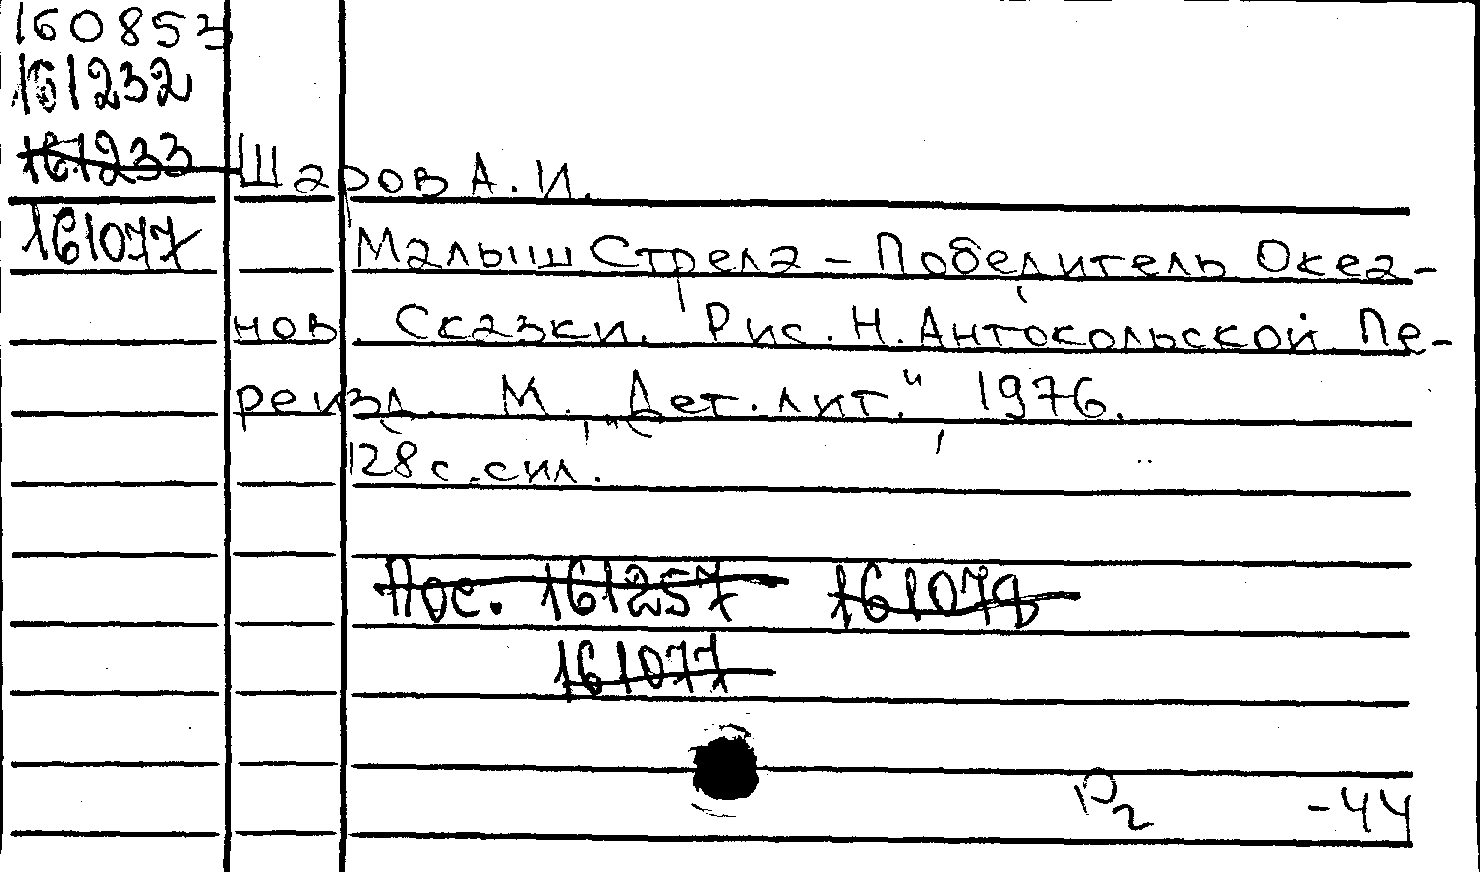 160853
161232
161233
Шаров А. И.
161077
Малыш Стрела – Победитель Океа-
нов. Сказки. Рис. Н. Антокольской. Пе-
реизд. М. „Дет. лит.“ 1976.
128 с. с ил.
Пос. 161257 161078
161077
Р2 -44